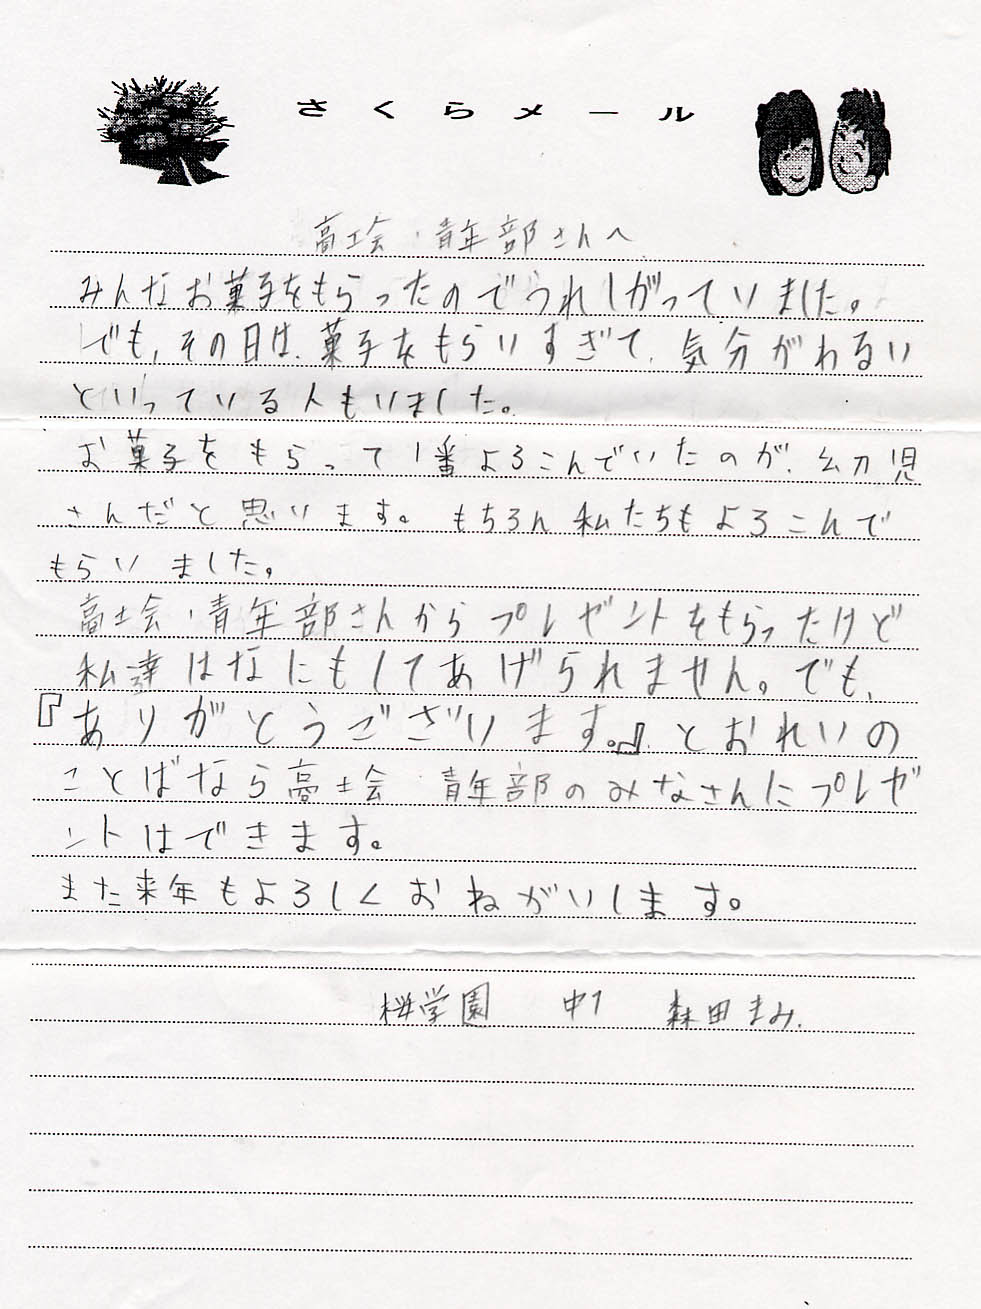 さくらメール
高士会・青年部さんへ
みんなお菓子をもらったのでうれしがっていました。
でも、その日は、菓子をもらいすぎて、気分がわるい
といっている人もいました。
お菓子をもらって1番よろこんでいたのが、幼児
さんだと思います。もちろん私たちもよろこんで
もらいました。
高士会・青年部さんからプレゼントをもらったけど
私達はなにもしてあげられません。でも、
『ありがとうございます。』とおれいの
ことばなら高士会・青年部のみなさんにプレゼ
ントはできます。
また来年もよろしくおねがいします。
桜学園 中1 森田まみ.